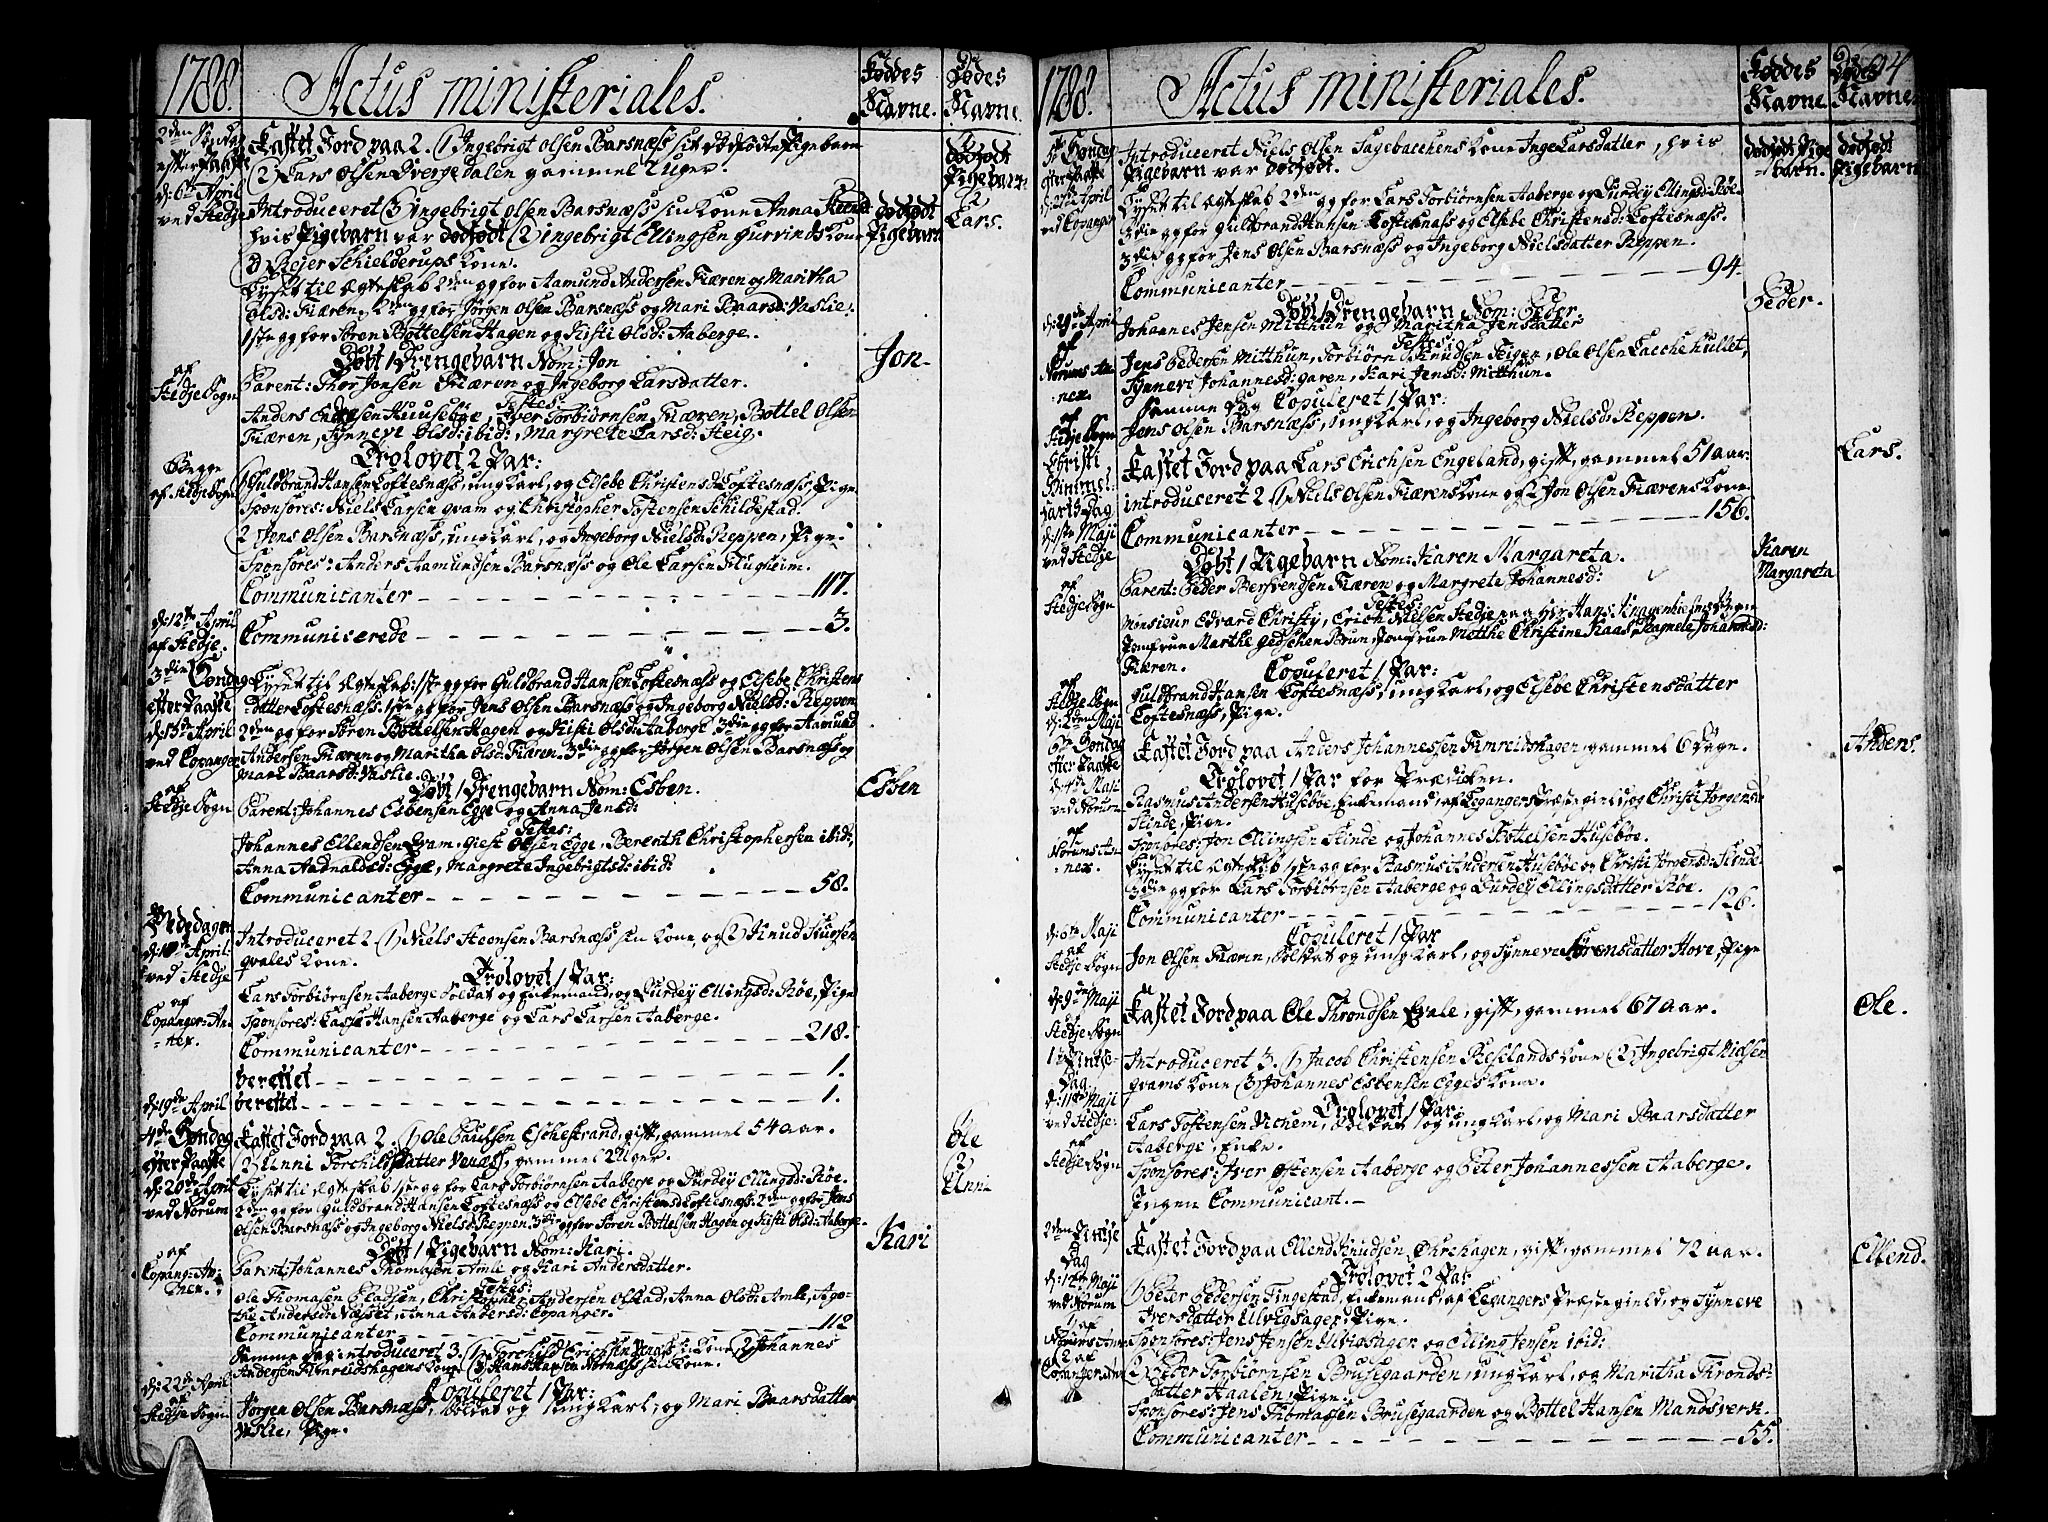 1788.
Actus ministeriales.
Føddes
Navne.
Dødes
Navne.
2den Søndag
efter Paaske
d: 6te April
ved Stedje
Kastet Jord paa 2. 1) Ingebrigt Olsen Barsnæss sit dødfødte Pigebarn
2) Lars Olsen Dvergedalen gammel 2 uger.
Introduceret 3 Ingebrigt Olsen Barsnæss sin Kone Anna
hvis Pigebarn var dødfødt 2) Ingebrigt Ellingsen Gurvinds Kone
3) Rejer Schielderups Kone.
dødfødt
Pigebarn
dødfødt
Pigebarn
2
Lars.
Lyset til Ægteskab 2den gg for Aamund Andersen Fiæren og Maritha
Olsd: Fiæren, 2den gg for Jørgen Olsen Barsnæss og Mari Baarsd: Vaslie.
1ste gg for Søren Bottelsen Hagen og Kisti Olsd: Aaberge.
Døbt 1 Drengebarn Nom: Jon
Jon
af
Stedje Sogn
Parent: Thor Jonsen Fiæren og Ingeborg Larsdatter.
Testes:
Anders Huusebøe, Iver Torbiörnsen Fiæren, Bottel Olsen
Fiæren, Synneve Olsd: ibid:, Margrete Larsd: Steig.
Trolovet 2 Par:
Begge
af Stedje Sogn
1) Guldbrand Hansen Loftesnæss, ung Karl, og Elsebe Christensd: Loftesnæss, Pige
Sponsores: Niels Larsen Qvam og Christopher Tostensen Schildestad.
2 Jens Olsen Barsnæss, ungkarl, og Ingeborg Nielsd: Reppen, Pige.
Sponsores: Anders Aamundsen Barsnæss og Ole Larsen Flugheim.
Communicanter 117.
d: 12te April
af Stedje.
Communicerede 3.
3die Søndag
efter Paaske
d: 13de April
ved Copanger
Lyset til Ægteskab: 1ste gg for Guldbrand Hansen Loftesnæss og Elsebe Christens
datter Loftesnæss: 1ste gg for Jens Olsen Barsnæss og Ingeborg Nielsd: Reppen
2den gg for Søren Bottelsen Hagen og Kisti Olsd: Aaberge 3die gg for Aamund
Andersen Fiæren og Maritha Olsd: Fiæren. 3die gg for Jörgen Olsen Barsnæss og
Mari Baarsd: Vaslie.
Døbt 1 Drengebarn Nom: Esben.
Esben
af
Stedje Sogn
Parent: Johannes Esbensen Egge og Anna Jensd:
Testes:
Johannes Ellendsen Qvam, Giest Olsen Egge, Berenth Christophersen ibid:
Anna Aadnaldsd: Egge, Margrete Ingebrigtsd: ibid:
Communicanter 58.
Bededagen
d: 18de April
ved Stedje
Introduceret 2 1) Niels Steensen Barsnæss sin Kone, og 2) Knud Sjursen
Qvales Kone.
Trolovet 1 Par:
af
Copanger An-
nex.
Lars Torbiörnsen Aaberge Soldat og Enkemand, og Durdey Ellingsd: Røe, Pige
Sponsores: Lasse Hansen Aaberge og Lars Larsen Aaberge.
Communicanter 218.
berettet 1.
d: 19de April berettet 1.
4de Søndag
efter Paaske
d: 20de April
ved Norum
Kastet Jord paa 2. 1) Ole Paulsen Eschestrand, gift, gammel 54 aar.
2) Unni Torchildsdatter Venæss, gammel 2 Uger.
Ole
2
Unni
Lyset til Ægteskab 1ste gg for Lars Torbiörnsen Aaberge og Durdey Ellingsd: Røe.
2den gg for Guldbrand Hansen Loftesnæss og Elsebe Christensd: Loftesnæss: 2den gg for Jens
Olsen Barsnæss og Ingeborg Nielsd: Reppen, 3die gg for Søren Bottelsen Hagen og Kisti Olsd: Aaberge
Døbt 1 Pigebarn Nom: Kari.
Kari
af
Copang: An-
nex.
Parent: Johannes Thomasen Amle og Kari Andersdatter.
Testes:
Ole Thomasen Eladsen, Christopher Andersen Olstad, Anna Olsd: Amle, Ago-
the Andersd: Næset, Anna Andersd: Copanger.
Communicanter 112
Samme Dag introduceret 3. 1) Torchild Erichsen Venæss sin Kone 2) Johannes
Andersen Fimreidshagens Kone 3) Hans Hansen Nornæss sin Kone.
d: 22de April
af
Stedje Sogn
Copuleret 1 Par:
Jørgen Olsen Barsnæss, Soldat og ung Karl, og Mari Baarsdatter
Vaslie, Pige.
1788.
Actus ministeriales.
Føddes
Navne.
Dødes
Navne.
94
5te Søndag
efter Paaske
d: 27de April
ved Copanger
Introduceret Niels Olsen Tagebacchens Kone Inge Larsdatter, hvis
Pigebarn var dødfødt.
dødfødt Pige
barn.
dødfødt
Pigebarn
Lyset til Ægteskab 2den gg for Lars Torbiörnsen Aaberge og Durdey Ellingsd: Røe.
3die gg for Guldbrand Hansen Loftesnæss og Elsebe Christensd: Loftesnæss.
3die gg for Jens Olsen Barsnæss og Ingeborg Nielsdatter Reppen.
Communicanter 94.
Døbt 1 Drengebarn Nom: Peder.
Peder.
d: 29de April
af
Norums An-
nex.
Johannes Jensen Mitthun og Maritha Jensdatter
Testes:
Jens Pedersen Mitthun, Torbiörn Knudsen Feigen, Ole Olsen Bacchehullet,
Synneve Johannesd: Garen, Kari Jensd: Mitthun.
af
Stedje Sogn
Samme Dag Copuleret 1 Par:
Jens Olsen Barsnæss, ung Karl, og Ingeborg Nielsd: Reppen.
Christi
Himmel-
farths Dag
d: 1ste Maji
ved Stedje
Kastet Jord paa Lars Erichsen Engeland, gift, gammel 51 aar.
Lars.
introduceret 2 1) Niels Olsen Fiærens Kone og 2) Jon Olsen Fiærens Kone
Communicanter 156.
Døbt 1 Pigebarn Nom: Karen Margareta.
Karen
Margareta
af
Stedje Sogn
Parent: Peder Bersvendsen Fiæren og Margrete Johannesd:
Testes:
Monsieur Edvard Christy, Erich Nielsen Stedje
Jomfrue Marthe Gedschen Brun, Jomfrue Metthe Christine Kaas, Ragnele Johannesd:
Fiæren.
Copuleret 1 Par:
af
Stedje Sogn
d: 2den Maji
Guldbrand Hansen Loftesnæss, ung Karl, og Elsebe Christensdatter
Loftesnæss, Pige.
6te Søndag
efter Paaske
d: 4de Maji
ved Norum
Kastet Jord paa Anders Johannessen Fimreidshagen, gammel 6 Dage.
Anders.
Trolovet 1 Par for Prædiken.
af
Norums An-
nex.
Rasmus Andersen Husebøe, Enkemand, af Leganger Præstegield, og Christi Jørgensd:
Slinde, Pige.
Sponsores: Jon Ellingsen Slinde og Johannes Bottelsen Husebøe.
Lyset til Ægteskab 1ste gg for Rasmus Andersen Husebøe og Christi Jørgensd: Slinde
3die gg for Lars Torbiörnsen Aaberge og Durdey Ellingsdatter Røe.
Communicanter 126.
d: 6te Maji
af
Stedje Sogn
Copuleret 1 Par
Jon Olsen Fiæren, Soldat og ung Karl, og Synneve Sørensdatter Hove, Pige
d: 9de Maji
af
Stedje Sogn
Kastet Jord paa Ole Throndsen Qvale, gift, gammel 67 aar.
Ole.
1ste Pintse-
Dag
d: 11te Maji
ved Stedje
Introduceret 3. 1) Jacob Christensen Reselands Kone 2) Ingebrigt Nielsen
Qvams Kone 3) Johannes Esbensen Egges Kone.
Trolovet 1 Par:
af
Stedje Sogn
Lars Tostensen Vichem, Soldat og ung Karl, og Mari Baarsdatter
Aaberge, Enke.
Sponsores: Iver Ostensen Aaberge og Peter Johannessen Aaberge.
Ingen Communicant.
2den Pintse
Dag
d: 12te Maji
ved Norum
Kastet Jord paa Ellend Knudsen Ohrehagen, gift, gammel 72 aar.
Ellend.
Trolovet 2 Par
1) af
Norums Annex
2 af
Copanger Annex
1) Peter Pedersen Tingestad, Enkemand, af Legangers Præstegield, og Synneve
Iversdatter Ulvigsager, Pige.
Sponsores: Jens Jensen Ulvigsager og Elling Jensen ibid:
2) Peter Torbiörnsen Brusegaarden, ung Karl, og Maritha Thronds-
datter Haalen, Pige.
Sponsores: Jens Thomassen Brusegaarden og Bottel Hansen Mandsverk.
Communicanter 55.